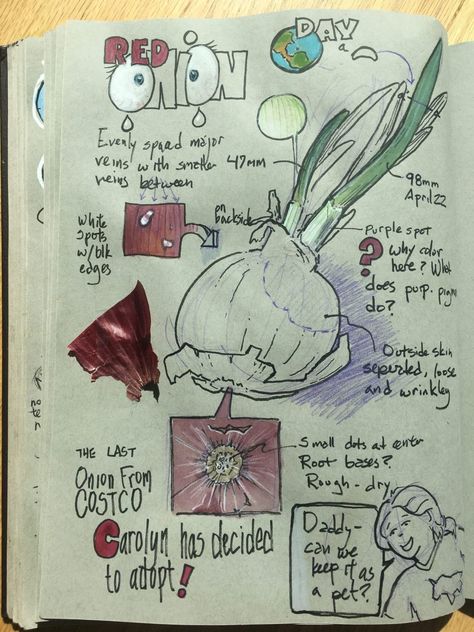 RED
ONION
DAY
a
Evenly spaced major
veins with smaller
veins between
47mm
98mm
April 22
white
spots
w/blk
edges
on
backside
Purple spot
? Why color
here? What
does purp. pigm
do?
Outside skin
seperated, loose
and wrinkley
Small dots at center
Root bases?
Rough - dry
THE LAST
ONION FROM
COSTCO
Carolyn has decided
to adopt!
Daddy-
can we
keep it as
a pet?